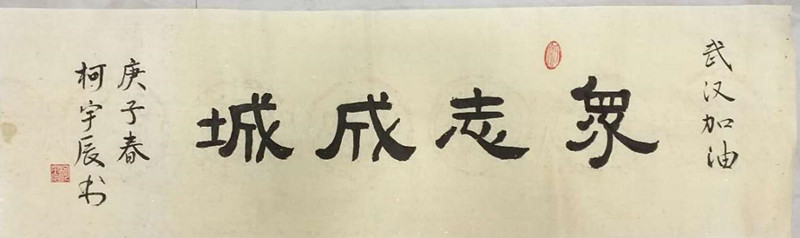 武汉加油
眾志成城
庚子春
柯宇辰书